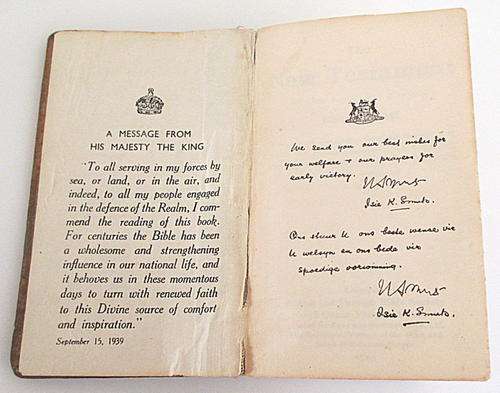 A MESSAGE FROM
HIS MAJESTY THE KING
"To all serving in my forces by
sea, or land, or in the air, and
indeed, to all my people engaged
in the defence of the Realm, I com-
mend the reading of this book.
For centuries the Bible has been
a wholesome and strengthening
influence in our national life, and
it behoves us in these momentous
days to turn with renewed faith
to this Divine source of comfort
and inspiration."
September 15, 1939
The
New Testament
We send you our best wishes for
your welfare & our prayers for
early victory.
Isie K. Smuts.
Ons stuur U ons beste wense vir
U welsyn en ons bede vir
spoedige oorwinning.
Isie K. Smuts.